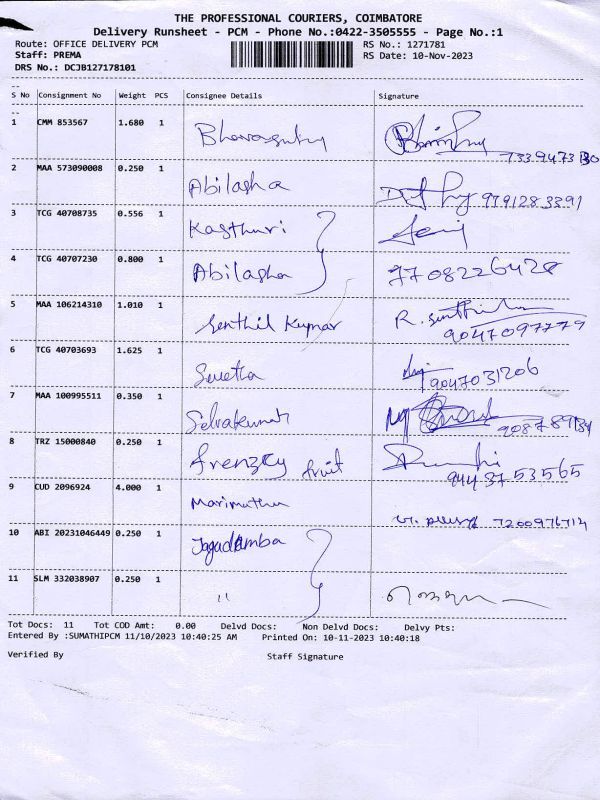 THE PROFESSIONAL COURIERS, COIMBATORE
Delivery Runsheet - PCM - Phone No.:0422-3505555 - Page No.:1
Route: OFFICE DELIVERY PCM RS No.: 1271781
Staff: PREMA RS Date: 10-Nov-2023
DRS No.: DCJB127178101
S No Consignment No Weight PCS Consignee Details Signature
1 CMM 853567 1.680 1
2 MAA 573090008 0.250 1 Abilasha 9791283391
3 TCG 40708735 0.556 1 Kasthuri
4 TCG 40707230 0.800 1 Abilasha 7708226428
5 MAA 106214310 1.010 1 Senthil Kumar R.
9047097779
6 TCG 40703693 1.625 1 Swetha 9047031206
7 MAA 100995511 0.350 1 Selvakumar
8 TRZ 15000840 0.250 1 frenzky fruit
9443753565
9 CUD 2096924 4.000 1 Marimuthu 7200976714
10 ABI 20231046449 0.250 1 Jagadamba
11 SLM 332038907 0.250 1 "
Tot Docs: 11 Tot COD Amt: 0.00 Delvd Docs: Non Delvd Docs: Delvy Pts:
Entered By :SUMATHIPCM 11/10/2023 10:40:25 AM Printed On: 10-11-2023 10:40:18
Verified By Staff Signature